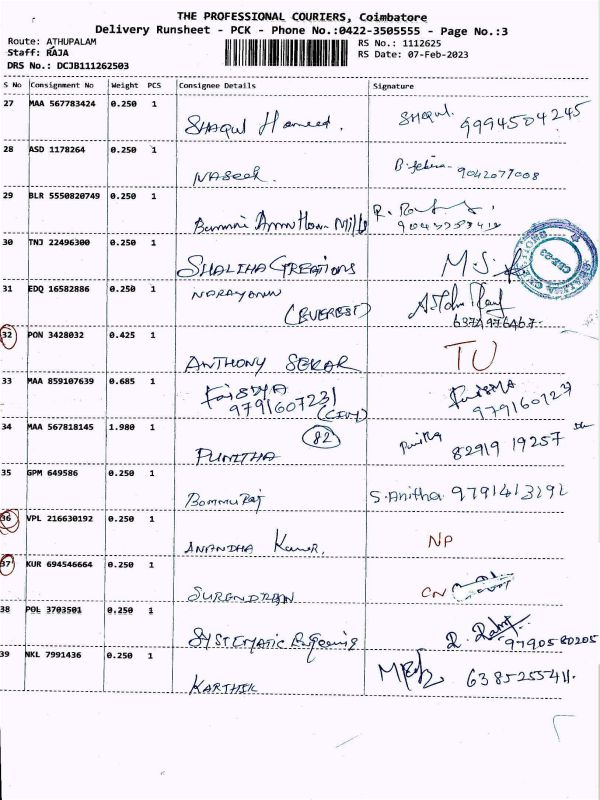 THE PROFESSIONAL COURIERS, Coimbatore
Delivery Runsheet - PCK - Phone No.:0422-3505555 - Page No.:3
Route: ATHUPALAM RS No.: 1112625
Staff: RAJA RS Date: 07-Feb-2023
DRS No.: DCJB111262503
S No Consignment No Weight PCS Consignee Details Signature
27 MAA 567783424 0.250 1
SHAQUL Hameed. SHAQUL. 9994504245
28 ASD 1178264 0.250 1
NASEEK. 9042077008
29 BLR 5550820749 0.250 1
Mills
30 TNJ 22496300 0.250 1
SHALIHA CREATIONS M.S.
31 EDQ 16582886 0.250 1
NARAYANAN
(EVEREST) 6374976467
32 PON 3428032 0.425 1
ANTHONY SEKAR TU
33 MAA 859107639 0.685 1
9791607231 9791607231
34 MAA 567818145 1.980 1
82
PUNITHA Punitha 82919 19257
35 GPM 649586 0.250 1
BOMMURAJ S.Anitha 9791413292
36 VPL 216630192 0.250 1
ANANDHA Kumar. NP
37 KUR 694546664 0.250 1
SURENDRAN CN
38 POL 3703501 0.250 1
SYSTEMATIC 9790580205
39 NKL 7991436 0.250 1
KARTHIK 6385255411.